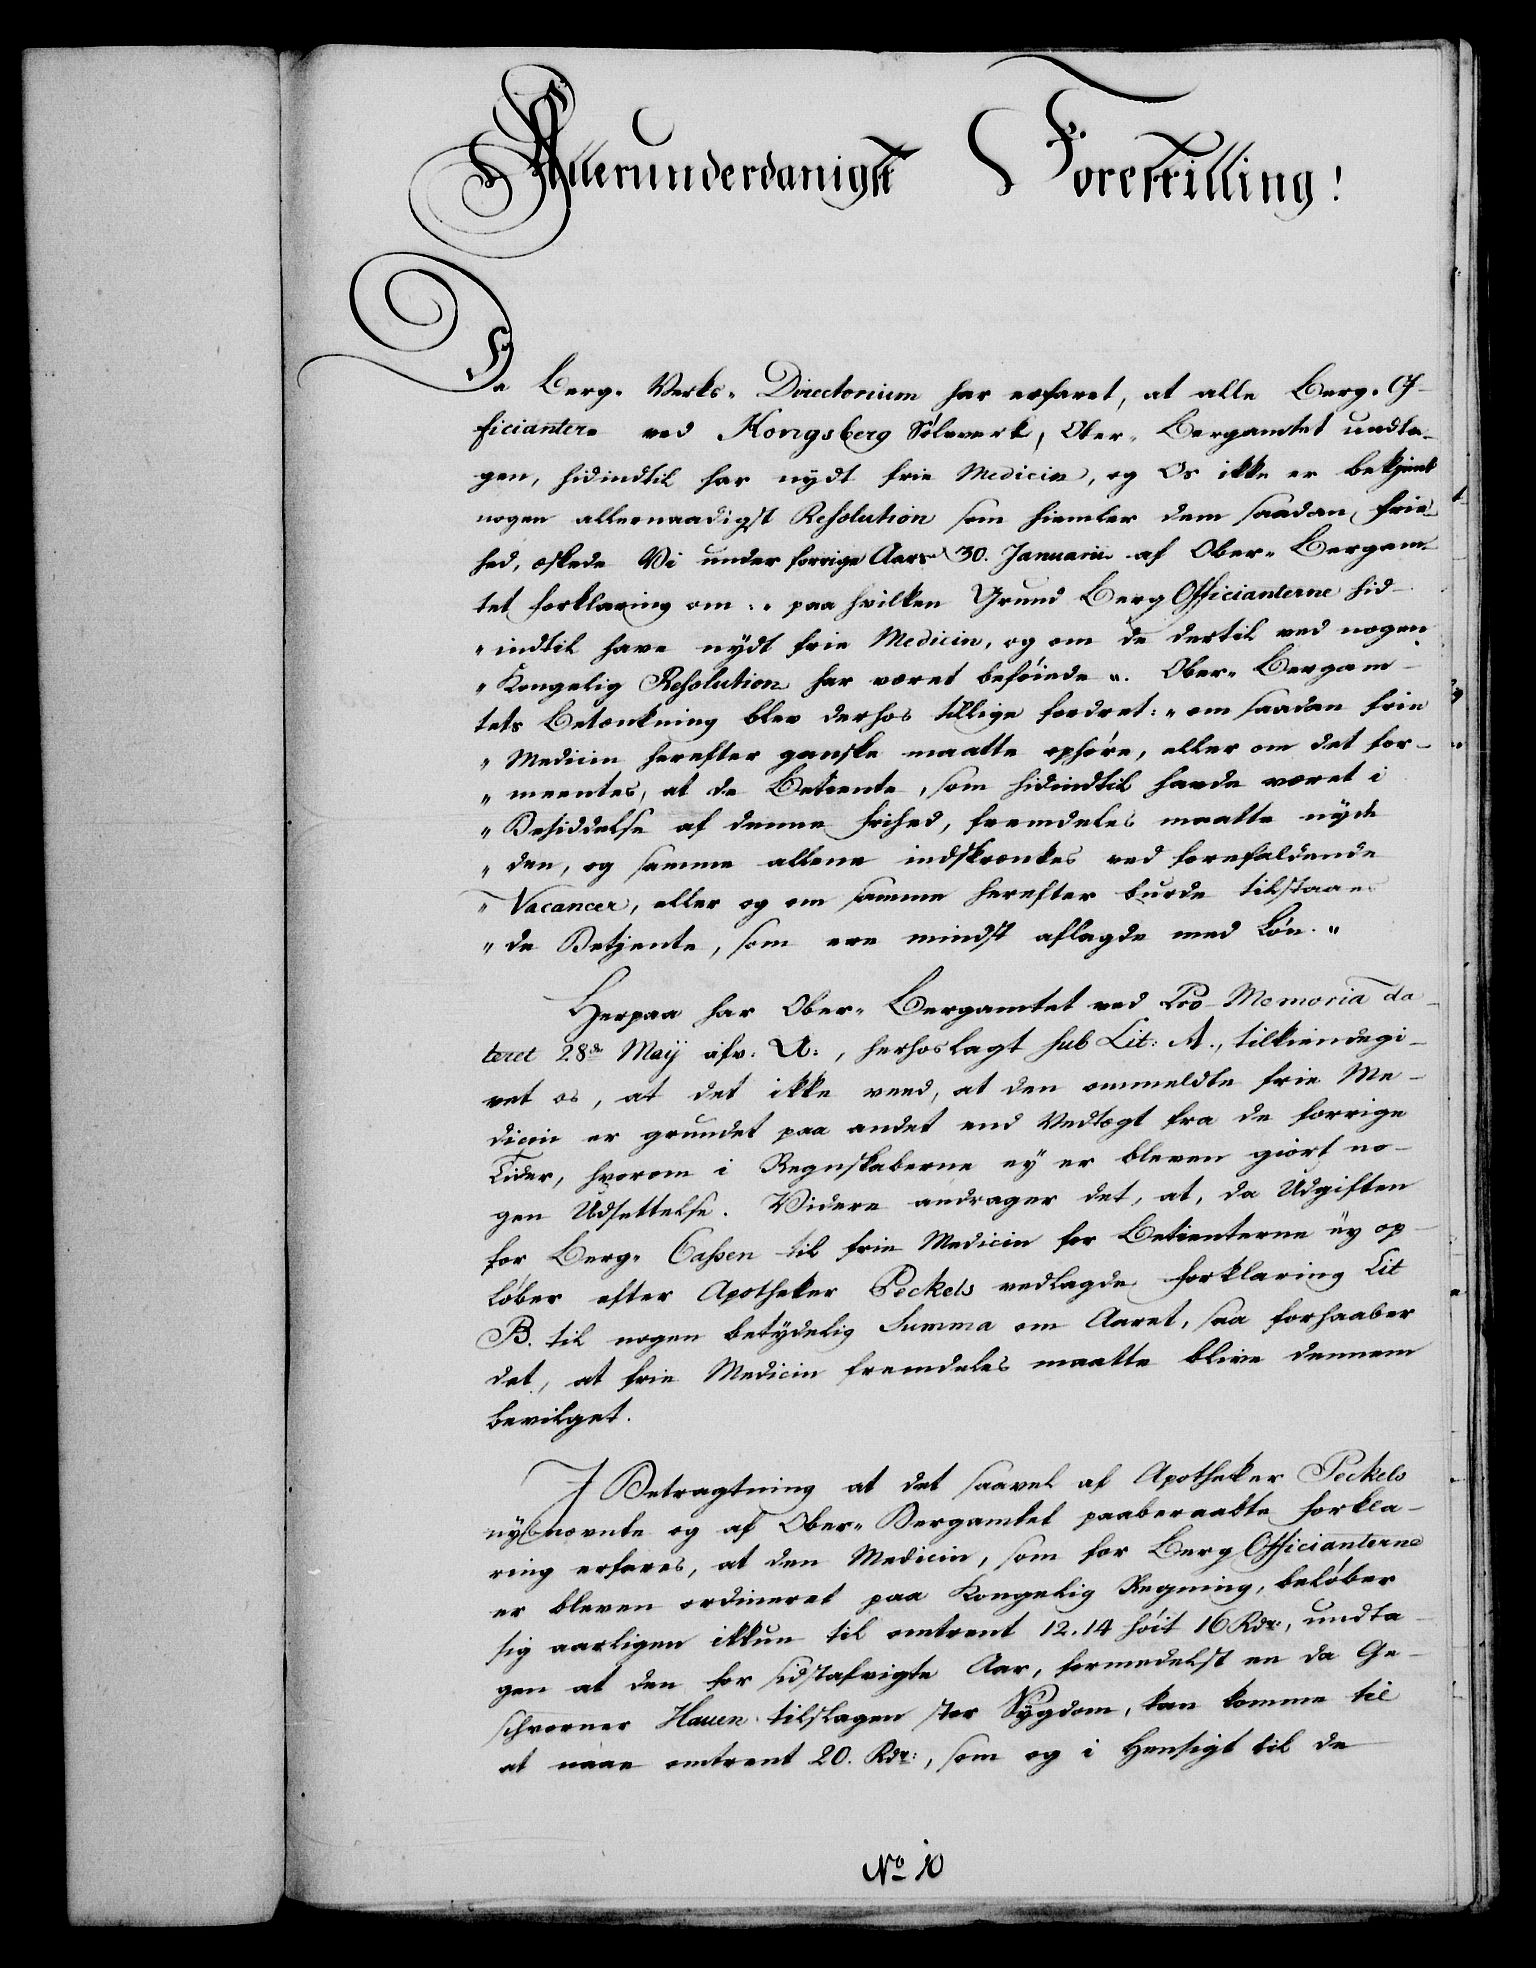 Allerunderdanigst Forestilling!
Da Berg-Verks-Directorium har erfaret, at alle Berg-Of-
ficianter ved Kongsberg Sølvverk, Ober-Bergamtet undta-
gen, hidindtil har nydt frie Medicin, og Os ikke er bekjendt
nogen allernaadigst Resolution som hiemler dem saadan Frie-
hed, æskede Vi under forrige Aars 30. Januarii af Ober-Bergam-
tet Forklaring om: "paa hvilken Grund Berg Officianterne hid-
"indtil have nydt frie Medicin, og om de dertil ved nogen
"Kongelig Resolution har været beføiede". Ober-Bergam-
tets Betænkning blev derhos tillige fordret: "om saadan frie
"Medicin herefter ganske maatte ophøre, eller om det for-
"meentes, at de Betiente, som hidindtil havde været i
"Besiddelse af denne Frihed, fremdeles maatte nyde
"den, og samme allene indskrænkes ved forefaldende
"Vacancer, eller og om samme herefter burde tilstaaes
"de Betjente, som ere mindst aflagde med Løn."
Herpaa har Ober-Bergamtet ved Pro-Memoria da-
teret 28de Maij afv: A:, herhoslagt sub Lit: A., tilkiendegi-
vet os, at det ikke veed, at den ommeldte frie Me-
dicin er grundet paa andet end Vedtægt fra de forrige
Tider, hvorom i Regnskaberne ey er bleven giort no-
gen Udsettelse. Videre andrager det, at, da Udgiften
for Berg-Cassen til frie Medicin for Betienterne ey op-
løber efter Apotheker Peckels vedlagde Forklaring Lit
B. til nogen betydelig Summa om Aaret, saa forhaaber
det, at frie Medicin fremdeles maatte blive dennem
bevilget.
I Betragtning at det saavel af Apotheker Peckels
nysnævnte og af Ober-Bergamtet paaberaabte Forkla-
ring erfares, at den Medicin, som for Berg Officianterne
er bleven ordineret paa Kongelig Regning, beløber
sig aarligen ikkun til omtrent 12. 14 høit 16 Rdr:, undta-
gen at den for sidstafvigte Aar, formedelst en da Ge-
schworner Hauen tilslagen stor Sygdom, kan komme til
at naae omtrent 20. Rdr:, som og i Hensigt til de
No 10